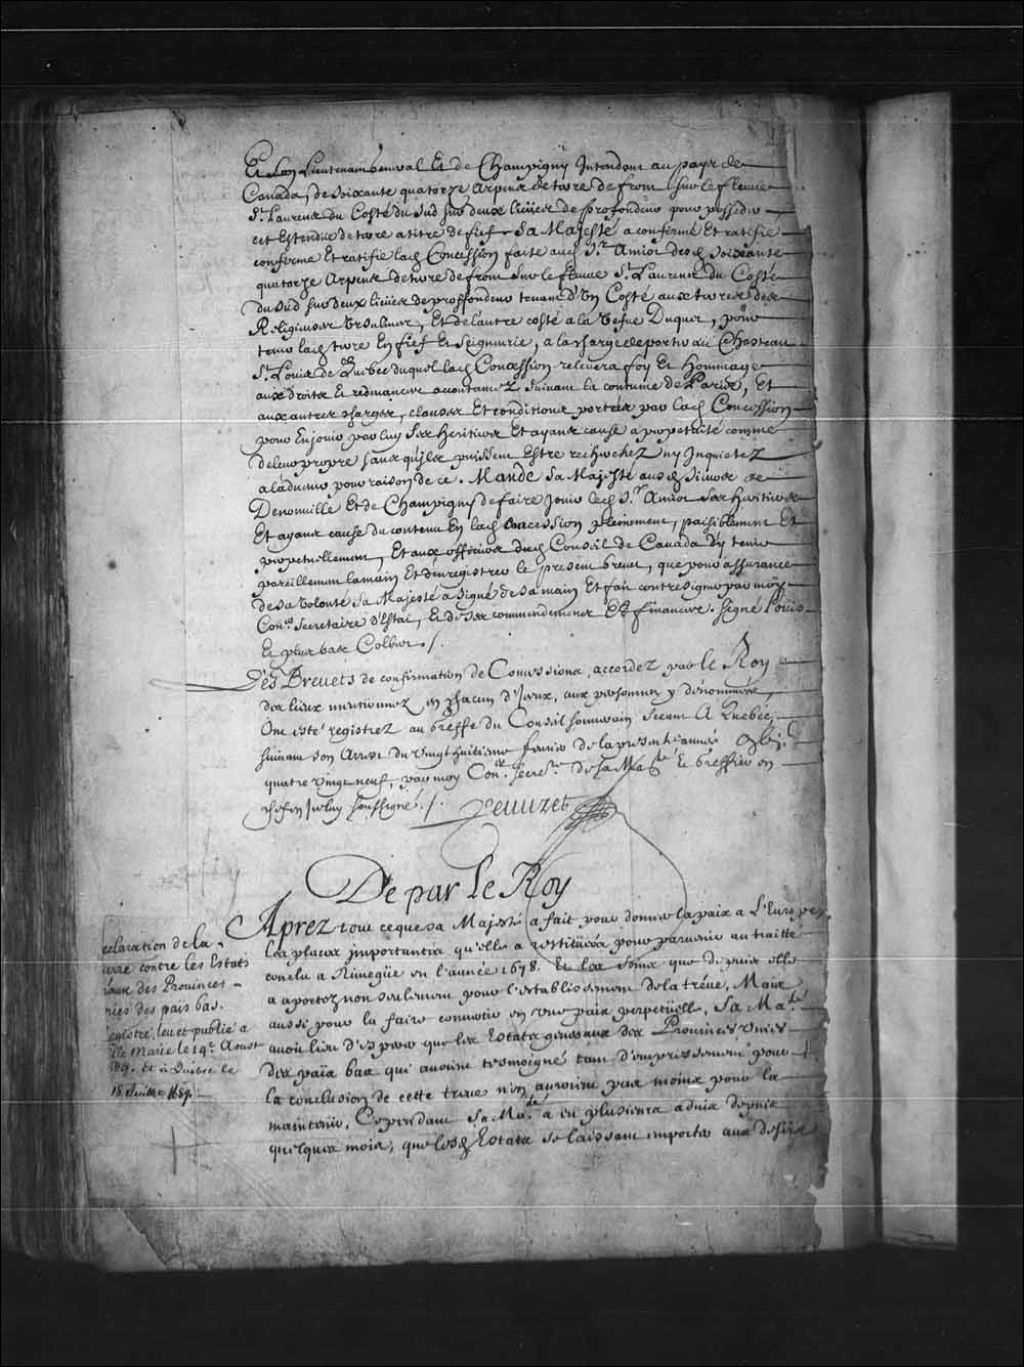 Et son Lieutenant General Et de Champigny Intendant au pays de
Canada, de soixante quatorze arpens de terre de front sur le fleuve
St. Laurens du Costé du Sud sur deux lieües de profondeur pour posseder
cet Estendüe de terre a titre de fief. Sa Majesté a confirmé Et ratifié
confirme Et ratifie lad. Concession faite aud. Sr. Amiot desd. soixante
quatorze Arpens de terre de front sur le fleuve St. Laurens du Costé
du Sud sur deux lieües de proffondeur tenant d'Un Costé aux terres des
Religieuses Ursulines, Et de l'autre costé a la Vefve Duquet, pour
tenir lad. terre En fief Et Seigneurie, a la charge de porter au Chasteau
St. Louis de Quebec duquel lad. Concession relevera foy Et Hommage
aux droits Et redevances acoutumez suivant la coutume de Paris, Et
aux autres charges, clauses Et conditions portées par lad. Concession
pour En jouir par luy Ses Heritiers Et ayans cause a perpetuité comme
de leur propre sans qu'ils puissent Estre recherchez ny Inquietez
a l'advenir pour raison de ce. Mande Sa Majesté ausd. Sieurs de
Denonville Et de Champigny de faire Jouir led. Sr. Amiot Ses Heritiers
Et ayans cause du contenu En lad. Concession plainement, paisiblement Et
perpetuellement, Et aux officiers dud. Conseil de Canada d'y tenir
pareillement la main Et d'enregistrer le present brevet, que pour assurance
de sa Volonté Sa Majesté a signé de sa main Et fait contresigner par moy
Conser. Secretaire d'Estat, Et de ses commandemens Et finances. Signé Louis
Et plus bas Colbert ./.
Les Brevets de confirmation de Concessions, accordez par le Roy
des lieux mentionnez en chacun d'Iceux, aux personnes y dénommées,
Ont esté registrez au Greffe du Conseil souverain seant A Quebec,
suivant son Arrest du vingt huitieme fevrier de la presente année
quatre vingt neuf, par moy Conser. Secretre. de sa Mate. et Greffier en
chef en Iceluy soussigné ./. Peuuret
De par le Roy
Aprez tout ce que sa Majesté a fait pour donner la paix a l'Europe,
les places importantes qu'elle a restituées pour parvenir au traitté
conclu a Nimegüe en l'année 1678. Et les soins que depuis elle
a aportez non seulement pour l'establissement de la tréve, Mais
aussi pour la faire convertir en une paix perpetüelle, Sa Maté.
avoit lieu d'esperer que les Estats generaux des Provinces Unies
des païs bas qui avoient tesmoigné tant d'empressement pour
la conclusion de cette treve n'en auroient pas moins pour la
maintenir. Cependant Sa Maté. a eu plusieurs advis depuis
quelques mois, que lesd. Estats se laissant emporter aux desirs
eclaration de la
erre contre les Estats
raux des Provinces
nies des païs bas.
egistré, leu et publié a
lle Marie le 14e. Aoust
89. et à Quebec le
18 Juillet 1689.